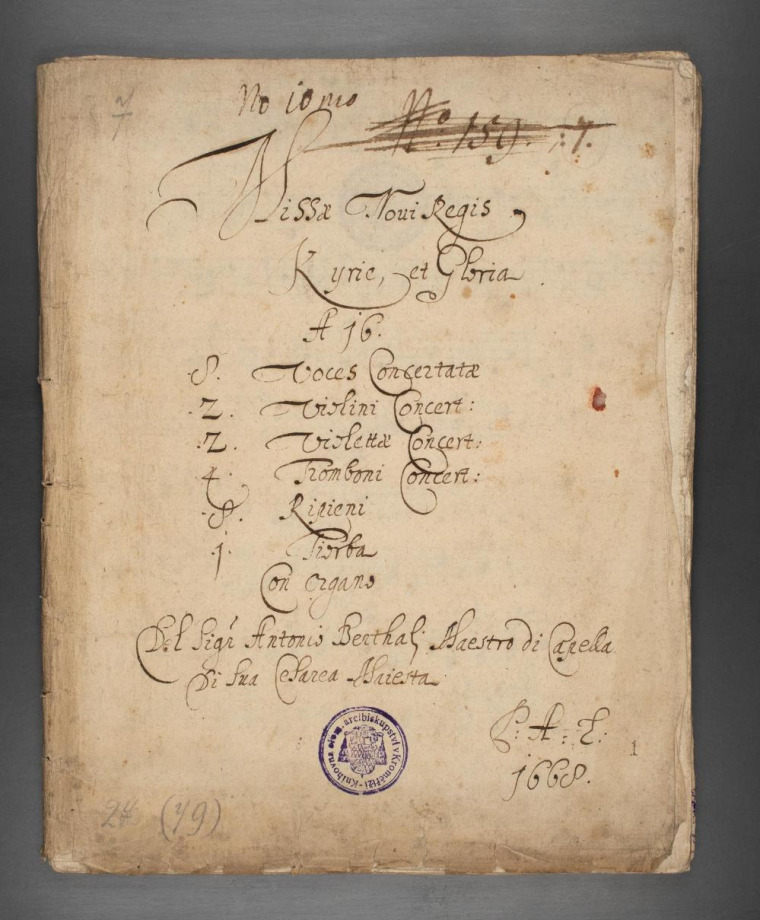 7
No 10 mo No. 159. :7.
Missæ Noui Regis
Kyrie, et Gloria.
A 16.
8. Voces Concertatæ
.2. Violini Concert:
.2. Violettæ Concert:
4. Tromboni Concert:
.8. Ripieni
1. Tiorba
Con Organo
Del Sigr Antonio Berthali Maestro di Capella
Di Sua Cesarea Maiesta
P: A: L:
1668.
1
Knihovna olom. arcibiskupství v Kroměříži
24 (79)